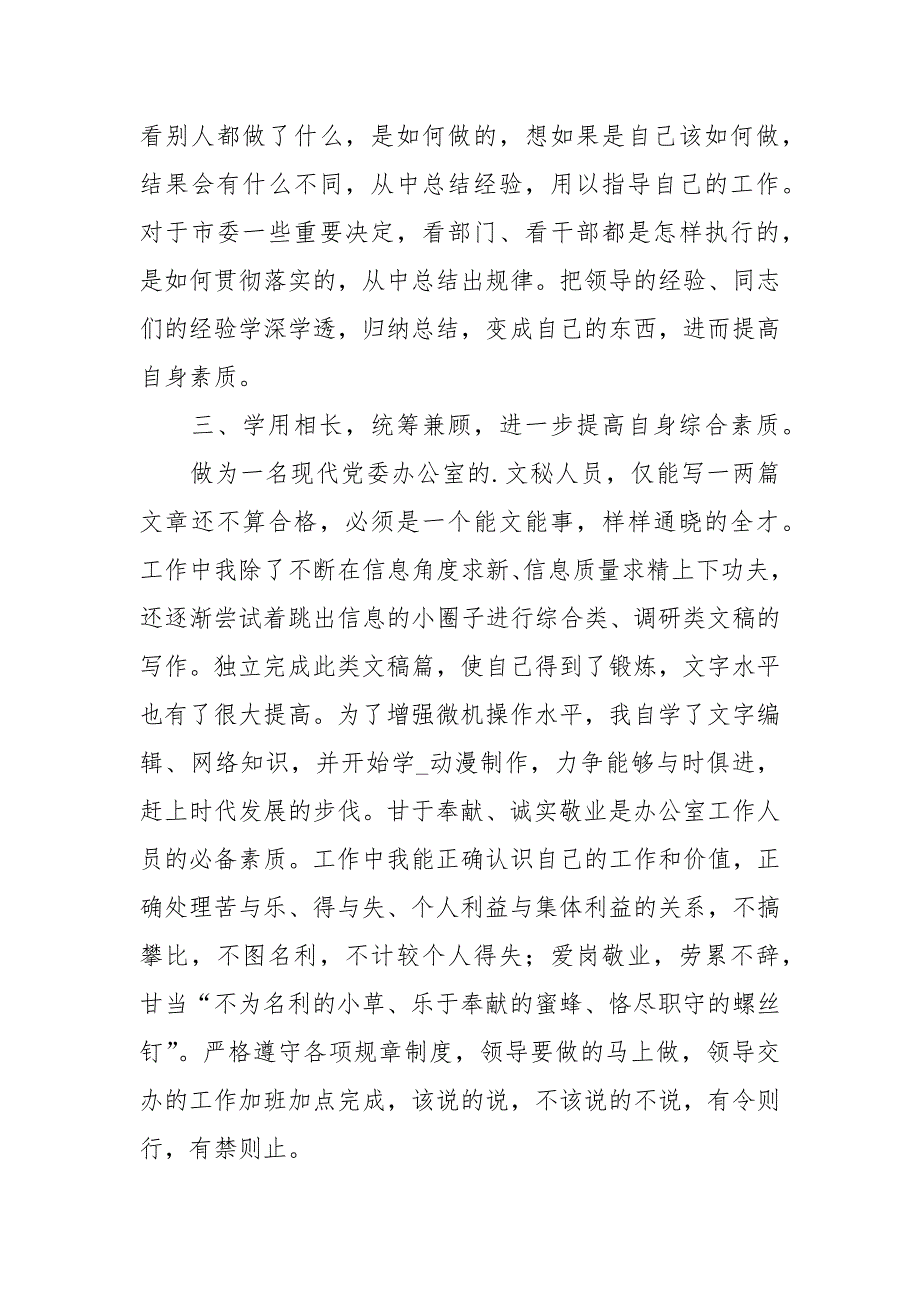 看别人都做了什么，是如何做的，想如果是自己该如何做，
结果会有什么不同，从中总结经验，用以指导自己的工作。
对于市委一些重要决定，看部门、看干部都是怎样执行的，
是如何贯彻落实的，从中总结出规律。把领导的经验、同志
们的经验学深学透，归纳总结，变成自己的东西，进而提高
自身素质。
三、学用相长，统筹兼顾，进一步提高自身综合素质。
做为一名现代党委办公室的.文秘人员，仅能写一两篇
文章还不算合格，必须是一个能文能事，样样通晓的全才。
工作中我除了不断在信息角度求新、信息质量求精上下功夫，
还逐渐尝试着跳出信息的小圈子进行综合类、调研类文稿的
写作。独立完成此类文稿篇，使自己得到了锻炼，文字水平
也有了很大提高。为了增强微机操作水平，我自学了文字编
辑、网络知识，并开始学_动漫制作，力争能够与时俱进，
赶上时代发展的步伐。甘于奉献、诚实敬业是办公室工作人
员的必备素质。工作中我能正确认识自己的工作和价值，正
确处理苦与乐、得与失、个人利益与集体利益的关系，不搞
攀比，不图名利，不计较个人得失；爱岗敬业，劳累不辞，
甘当“不为名利的小草、乐于奉献的蜜蜂、恪尽职守的螺丝
钉”。严格遵守各项规章制度，领导要做的马上做，领导交
办的工作加班加点完成，该说的说，不该说的不说，有令则
行，有禁则止。